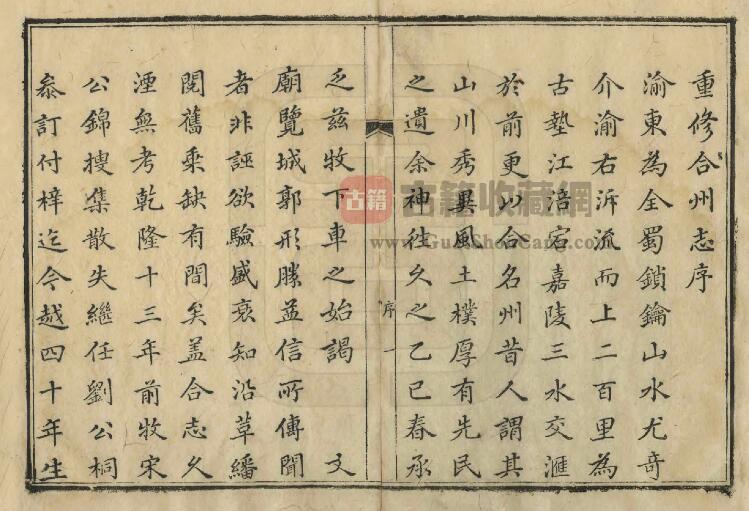 重修合州志序
渝東為全蜀鎖鑰山水尤奇
介渝右泝流而上二百里為
古墊江涪宕嘉陵三水交滙
於前更以合名州昔人謂其
山川秀異風土樸厚有先民
之遺余神往久之乙巳春承
乏茲牧下車之始謁 文
廟覽城郭形勝益信所傳聞
者非誣欲驗盛衰知沿革繙
閱舊乘缺有間矣蓋合志久
湮無考乾隆十三年前牧宋
公錦搜集散失繼任劉公桐
叅訂付梓迄今越四十年生
序
一
古籍
古籍收藏網
www.GuJiShouCang.com